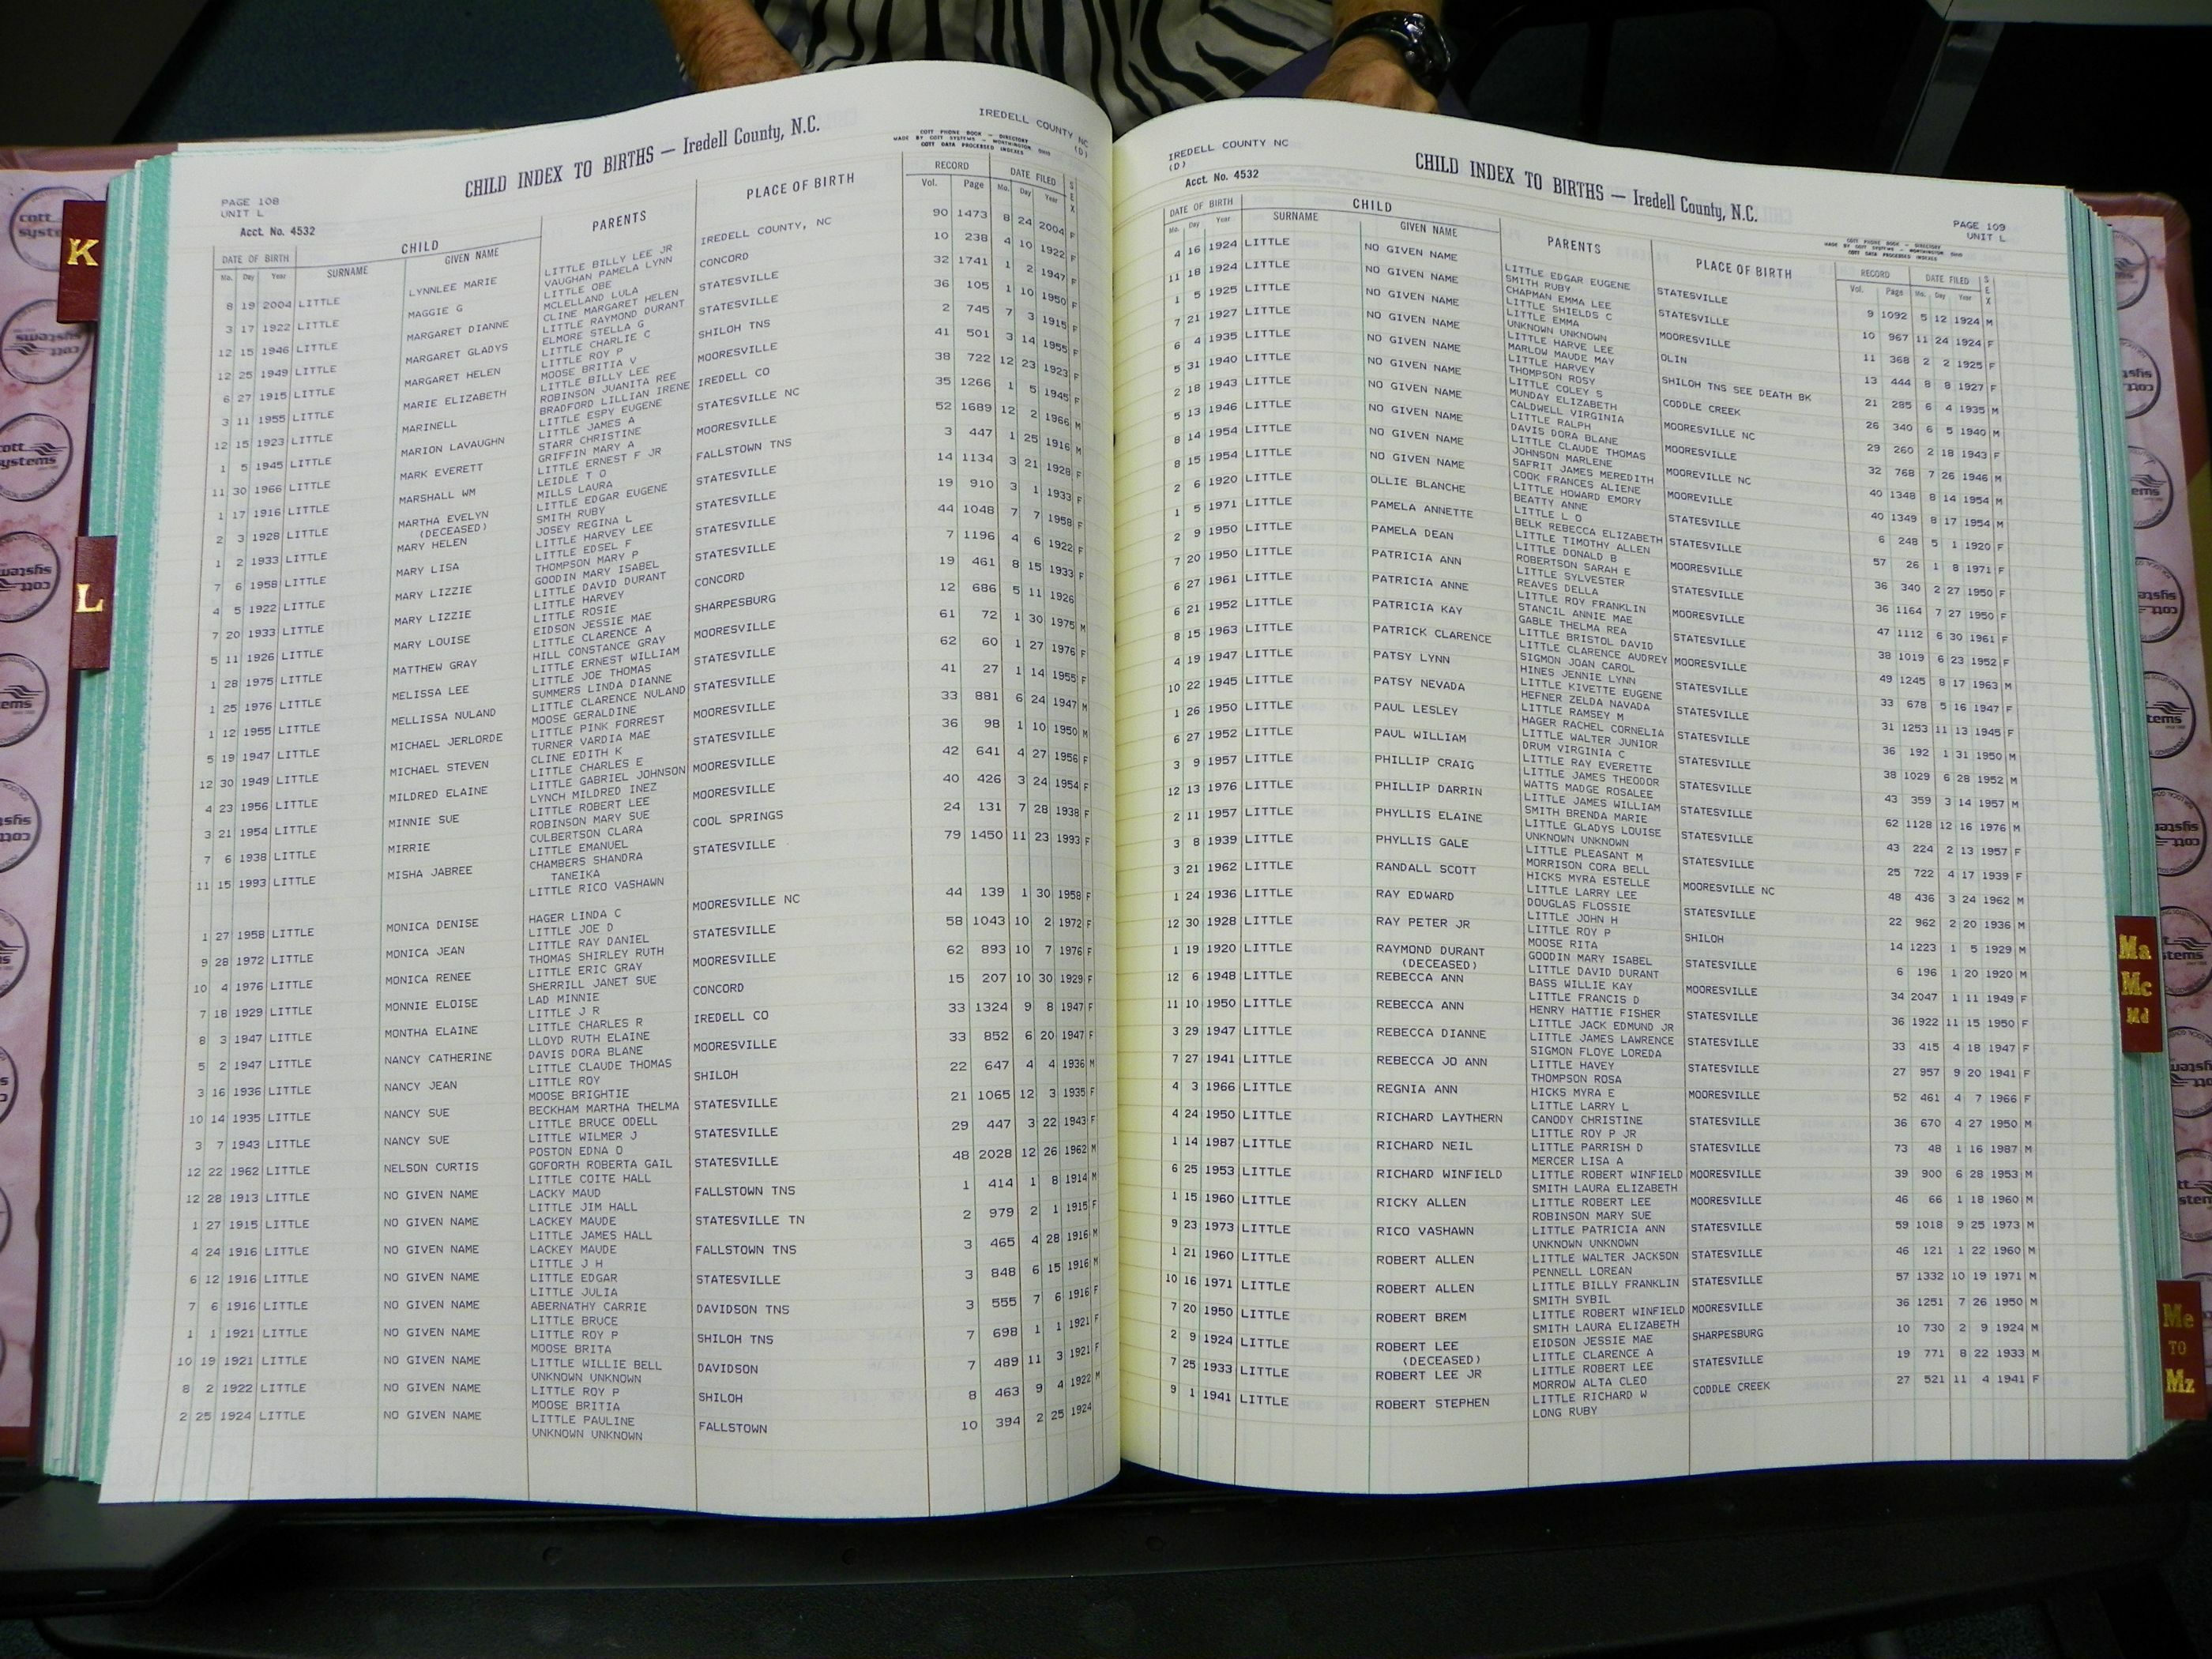 IREDELL COUNTY NC
(D)
CHILD INDEX TO BIRTHS — Iredell County, N.C.
COTT PHONE BOOK — DIRECTORY
MADE BY COTT SYSTEMS — WORTHINGTON, OHIO
COTT DATA PROCESSED INDEXES
PAGE 108
UNIT L
Acct. No. 4532
DATE OF BIRTH CHILD PARENTS PLACE OF BIRTH RECORD DATE FILED SEX
Mo. Day Year SURNAME GIVEN NAME Vol. Page Mo. Day Year
8 19 2004 LITTLE LYNNLEE MARIE LITTLE BILLY LEE JR IREDELL COUNTY, NC 90 1473 8 24 2004 F
VAUGHAN PAMELA LYNN
3 17 1922 LITTLE MAGGIE G LITTLE OBE CONCORD 10 238 4 10 1922 F
MCLELLAND LULA
12 15 1946 LITTLE MARGARET DIANNE CLINE MARGARET HELEN STATESVILLE 32 1741 1 2 1947 F
LITTLE RAYMOND DURANT
12 25 1949 LITTLE MARGARET GLADYS ELMORE STELLA G STATESVILLE 36 105 1 10 1950 F
LITTLE CHARLIE C
6 27 1915 LITTLE MARGARET HELEN LITTLE ROY P SHILOH TNS 2 745 7 3 1915 F
MOOSE BRITIA V
3 11 1955 LITTLE MARIE ELIZABETH LITTLE BILLY LEE MOORESVILLE 41 501 3 14 1955 F
ROBINSON JUANITA REE
12 15 1923 LITTLE MARINELL BRADFORD LILLIAN IRENE IREDELL CO 38 722 12 23 1923 F
LITTLE ESPY EUGENE
1 5 1945 LITTLE MARION LAVAUGHN LITTLE JAMES A STATESVILLE NC 35 1266 1 5 1945 F
STARR CHRISTINE
11 30 1966 LITTLE MARK EVERETT GRIFFIN MARY A MOORESVILLE 52 1689 12 2 1966 M
LITTLE ERNEST F JR
1 17 1916 LITTLE MARSHALL WM LEIDLE T O FALLSTOWN TNS 3 447 1 25 1916 M
MILLS LAURA
2 3 1928 LITTLE MARTHA EVELYN LITTLE EDGAR EUGENE STATESVILLE 14 1134 3 21 1928 F
(DECEASED) SMITH RUBY
1 2 1933 LITTLE MARY HELEN JOSEY REGINA L STATESVILLE 19 910 3 1 1933 F
LITTLE HARVEY LEE
7 6 1958 LITTLE MARY LISA LITTLE EDSEL F STATESVILLE 44 1048 7 7 1958 F
THOMPSON MARY P
4 5 1922 LITTLE MARY LIZZIE GOODIN MARY ISABEL STATESVILLE 7 1196 4 6 1922 F
LITTLE DAVID DURANT
7 20 1933 LITTLE MARY LIZZIE LITTLE HARVEY CONCORD 19 461 8 15 1933 F
LITTLE ROSIE
5 11 1926 LITTLE MARY LOUISE EIDSON JESSIE MAE SHARPESBURG 12 686 5 11 1926
LITTLE CLARENCE A
1 28 1975 LITTLE MATTHEW GRAY HILL CONSTANCE GRAY MOORESVILLE 61 72 1 30 1975 M
LITTLE ERNEST WILLIAM
1 25 1976 LITTLE MELISSA LEE LITTLE JOE THOMAS STATESVILLE 62 60 1 27 1976 F
SUMMERS LINDA DIANNE
1 12 1955 LITTLE MELLISSA NULAND LITTLE CLARENCE NULAND STATESVILLE 41 27 1 14 1955 F
MOOSE GERALDINE
5 19 1947 LITTLE MICHAEL JERLORDE LITTLE PINK FORREST MOORESVILLE 33 881 6 24 1947 M
TURNER VARDIA MAE
12 30 1949 LITTLE MICHAEL STEVEN CLINE EDITH K STATESVILLE 36 98 1 10 1950 M
LITTLE CHARLES E
4 23 1956 LITTLE MILDRED ELAINE LITTLE GABRIEL JOHNSON MOORESVILLE 42 641 4 27 1956 F
LYNCH MILDRED INEZ
3 21 1954 LITTLE MINNIE SUE LITTLE ROBERT LEE MOORESVILLE 40 426 3 24 1954 F
ROBINSON MARY SUE
7 6 1938 LITTLE MIRRIE CULBERTSON CLARA COOL SPRINGS 24 131 7 28 1938 F
LITTLE EMANUEL
11 15 1993 LITTLE MISHA JABREE CHAMBERS SHANDRA STATESVILLE 79 1450 11 23 1993 F
TANEIKA
LITTLE RICO VASHAWN
1 27 1958 LITTLE MONICA DENISE HAGER LINDA C MOORESVILLE NC 44 139 1 30 1958 F
LITTLE JOE D
9 28 1972 LITTLE MONICA JEAN LITTLE RAY DANIEL STATESVILLE 58 1043 10 2 1972 F
THOMAS SHIRLEY RUTH
10 4 1976 LITTLE MONICA RENEE LITTLE ERIC GRAY MOORESVILLE 62 893 10 7 1976 F
SHERRILL JANET SUE
7 18 1929 LITTLE MONNIE ELOISE LAD MINNIE CONCORD 15 207 10 30 1929 F
LITTLE J R
8 3 1947 LITTLE MONTHA ELAINE LITTLE CHARLES R IREDELL CO 33 1324 9 8 1947 F
LLOYD RUTH ELAINE
5 2 1947 LITTLE NANCY CATHERINE DAVIS DORA BLANE MOORESVILLE 33 852 6 20 1947 F
LITTLE CLAUDE THOMAS
3 16 1936 LITTLE NANCY JEAN LITTLE ROY SHILOH 22 647 4 4 1936 M
MOOSE BRIGHTIE
10 14 1935 LITTLE NANCY SUE BECKHAM MARTHA THELMA STATESVILLE 21 1065 12 3 1935 F
LITTLE BRUCE ODELL
3 7 1943 LITTLE NANCY SUE LITTLE WILMER J STATESVILLE 29 447 3 22 1943 F
POSTON EDNA D
12 22 1962 LITTLE NELSON CURTIS GOFORTH ROBERTA GAIL STATESVILLE 48 2028 12 26 1962 M
LITTLE COITE HALL
12 28 1913 LITTLE NO GIVEN NAME LACKY MAUD FALLSTOWN TNS 1 414 1 8 1914 M
LITTLE JIM HALL
1 27 1915 LITTLE NO GIVEN NAME LACKEY MAUDE STATESVILLE TN 2 979 2 1 1915 F
LITTLE JAMES HALL
4 24 1916 LITTLE NO GIVEN NAME LACKEY MAUDE FALLSTOWN TNS 3 465 4 28 1916 M
LITTLE J H
6 12 1916 LITTLE NO GIVEN NAME LITTLE EDGAR STATESVILLE 3 848 6 15 1916 M
LITTLE JULIA
7 6 1916 LITTLE NO GIVEN NAME ABERNATHY CARRIE DAVIDSON TNS 3 555 7 6 1916 F
LITTLE BRUCE
1 1 1921 LITTLE NO GIVEN NAME LITTLE ROY P SHILOH TNS 7 698 1 1 1921 F
MOOSE BRITA
10 19 1921 LITTLE NO GIVEN NAME LITTLE WILLIE BELL DAVIDSON 7 489 11 3 1921 F
UNKNOWN UNKNOWN
8 2 1922 LITTLE NO GIVEN NAME LITTLE ROY P SHILOH 8 463 9 4 1922 M
MOOSE BRITIA
2 25 1924 LITTLE NO GIVEN NAME LITTLE PAULINE FALLSTOWN 10 394 2 25 1924
UNKNOWN UNKNOWN
IREDELL COUNTY NC
(D)
CHILD INDEX TO BIRTHS — Iredell County, N.C.
Acct. No. 4532
PAGE 109
UNIT L
COTT PHONE BOOK — DIRECTORY
MADE BY COTT SYSTEMS — WORTHINGTON, OHIO
COTT DATA PROCESSED INDEXES
DATE OF BIRTH CHILD PARENTS PLACE OF BIRTH RECORD DATE FILED SEX
Mo. Day Year SURNAME GIVEN NAME Vol. Page Mo. Day Year
4 16 1924 LITTLE NO GIVEN NAME LITTLE EDGAR EUGENE STATESVILLE 9 1092 5 12 1924 M
SMITH RUBY
11 18 1924 LITTLE NO GIVEN NAME CHAPMAN EMMA LEE STATESVILLE 10 967 11 24 1924 F
LITTLE SHIELDS C
1 5 1925 LITTLE NO GIVEN NAME LITTLE EMMA MOORESVILLE 11 368 2 2 1925 F
UNKNOWN UNKNOWN
7 21 1927 LITTLE NO GIVEN NAME LITTLE HARVE LEE OLIN 13 444 8 8 1927 F
MARLOW MAUDE MAY
6 4 1935 LITTLE NO GIVEN NAME LITTLE HARVEY SHILOH TNS SEE DEATH BK 21 285 6 4 1935 M
THOMPSON ROSY
5 31 1940 LITTLE NO GIVEN NAME LITTLE COLEY S CODDLE CREEK 26 340 6 5 1940 M
MUNDAY ELIZABETH
2 18 1943 LITTLE NO GIVEN NAME CALDWELL VIRGINIA MOORESVILLE NC 29 260 2 18 1943 F
LITTLE RALPH
5 13 1946 LITTLE NO GIVEN NAME DAVIS DORA BLANE MOORESVILLE 32 768 7 26 1946 M
LITTLE CLAUDE THOMAS
8 14 1954 LITTLE NO GIVEN NAME JOHNSON MARLENE MOOREVILLE NC 40 1348 8 14 1954 M
SAFRIT JAMES MEREDITH
8 15 1954 LITTLE NO GIVEN NAME COOK FRANCES ALIENE MOOREVILLE 40 1349 8 17 1954 M
LITTLE HOWARD EMORY
2 6 1920 LITTLE OLLIE BLANCHE BEATTY ANNE STATESVILLE 6 248 5 1 1920 F
LITTLE L O
1 5 1971 LITTLE PAMELA ANNETTE BELK REBECCA ELIZABETH STATESVILLE 57 26 1 8 1971 F
LITTLE TIMOTHY ALLEN
2 9 1950 LITTLE PAMELA DEAN LITTLE DONALD B MOORESVILLE 36 340 2 27 1950 F
ROBERTSON SARAH E
7 20 1950 LITTLE PATRICIA ANN LITTLE SYLVESTER STATESVILLE 36 1164 7 27 1950 F
REAVES DELLA
6 27 1961 LITTLE PATRICIA ANNE LITTLE ROY FRANKLIN MOORESVILLE 47 1112 6 30 1961 F
STANCIL ANNIE MAE
6 21 1952 LITTLE PATRICIA KAY GABLE THELMA REA STATESVILLE 38 1019 6 23 1952 F
LITTLE BRISTOL DAVID
8 15 1963 LITTLE PATRICK CLARENCE LITTLE CLARENCE AUDREY MOORESVILLE 49 1245 8 17 1963 M
SIGMON JOAN CAROL
4 19 1947 LITTLE PATSY LYNN HINES JENNIE LYNN STATESVILLE 33 678 5 16 1947 F
LITTLE KIVETTE EUGENE
10 22 1945 LITTLE PATSY NEVADA HEFNER ZELDA NAVADA STATESVILLE 31 1253 11 13 1945 F
LITTLE RAMSEY M
1 26 1950 LITTLE PAUL LESLEY HAGER RACHEL CORNELIA STATESVILLE 36 192 1 31 1950 M
LITTLE WALTER JUNIOR
6 27 1952 LITTLE PAUL WILLIAM DRUM VIRGINIA C STATESVILLE 38 1029 6 28 1952 M
LITTLE RAY EVERETTE
3 9 1957 LITTLE PHILLIP CRAIG LITTLE JAMES THEODOR STATESVILLE 43 359 3 14 1957 M
WATTS MADGE ROSALEE
12 13 1976 LITTLE PHILLIP DARRIN LITTLE JAMES WILLIAM STATESVILLE 62 1128 12 16 1976 M
SMITH BRENDA MARIE
2 11 1957 LITTLE PHYLLIS ELAINE LITTLE GLADYS LOUISE STATESVILLE 43 224 2 13 1957 F
UNKNOWN UNKNOWN
3 8 1939 LITTLE PHYLLIS GALE LITTLE PLEASANT M STATESVILLE 25 722 4 17 1939 F
MORRISON CORA BELL
3 21 1962 LITTLE RANDALL SCOTT HICKS MYRA ESTELLE MOORESVILLE NC 48 436 3 24 1962 M
LITTLE LARRY LEE
1 24 1936 LITTLE RAY EDWARD DOUGLAS FLOSSIE STATESVILLE 22 962 2 20 1936 M
LITTLE JOHN H
12 30 1928 LITTLE RAY PETER JR LITTLE ROY P SHILOH 14 1223 1 5 1929 M
MOOSE RITA
1 19 1920 LITTLE RAYMOND DURANT GOODIN MARY ISABEL STATESVILLE 6 196 1 20 1920 M
(DECEASED) LITTLE DAVID DURANT
12 6 1948 LITTLE REBECCA ANN BASS WILLIE KAY MOORESVILLE 34 2047 1 11 1949 F
LITTLE FRANCIS D
11 10 1950 LITTLE REBECCA ANN HENRY HATTIE FISHER STATESVILLE 36 1922 11 15 1950 F
LITTLE JACK EDMUND JR
3 29 1947 LITTLE REBECCA DIANNE LITTLE JAMES LAWRENCE STATESVILLE 33 415 4 18 1947 F
SIGMON FLOYE LOREDA
7 27 1941 LITTLE REBECCA JO ANN LITTLE HAVEY STATESVILLE 27 957 9 20 1941 F
THOMPSON ROSA
4 3 1966 LITTLE REGNIA ANN HICKS MYRA E MOORESVILLE 52 461 4 7 1966 F
LITTLE LARRY L
4 24 1950 LITTLE RICHARD LAYTHERN CANODY CHRISTINE STATESVILLE 36 670 4 27 1950 M
LITTLE ROY P JR
1 14 1987 LITTLE RICHARD NEIL LITTLE PARRISH D STATESVILLE 73 48 1 16 1987 M
MERCER LISA A
6 25 1953 LITTLE RICHARD WINFIELD LITTLE ROBERT WINFIELD MOORESVILLE 39 900 6 28 1953 M
SMITH LAURA ELIZABETH
1 15 1960 LITTLE RICKY ALLEN LITTLE ROBERT LEE MOORESVILLE 46 66 1 18 1960 M
ROBINSON MARY SUE
9 23 1973 LITTLE RICO VASHAWN LITTLE PATRICIA ANN STATESVILLE 59 1018 9 25 1973 M
UNKNOWN UNKNOWN
1 21 1960 LITTLE ROBERT ALLEN LITTLE WALTER JACKSON STATESVILLE 46 121 1 22 1960 M
PENNELL LOREAN
10 16 1971 LITTLE ROBERT ALLEN LITTLE BILLY FRANKLIN STATESVILLE 57 1332 10 19 1971 M
SMITH SYBIL
7 20 1950 LITTLE ROBERT BREM LITTLE ROBERT WINFIELD MOORESVILLE 36 1251 7 26 1950 M
SMITH LAURA ELIZABETH
2 9 1924 LITTLE ROBERT LEE EIDSON JESSIE MAE SHARPESBURG 10 730 2 9 1924 M
(DECEASED) LITTLE CLARENCE A
7 25 1933 LITTLE ROBERT LEE JR LITTLE ROBERT LEE STATESVILLE 19 771 8 22 1933 M
MORROW ALTA CLEO
9 1 1941 LITTLE ROBERT STEPHEN LITTLE RICHARD W CODDLE CREEK 27 521 11 4 1941 F
LONG RUBY
K
L
Ma
Mc
Md
Me
TO
Mz
cott
systems